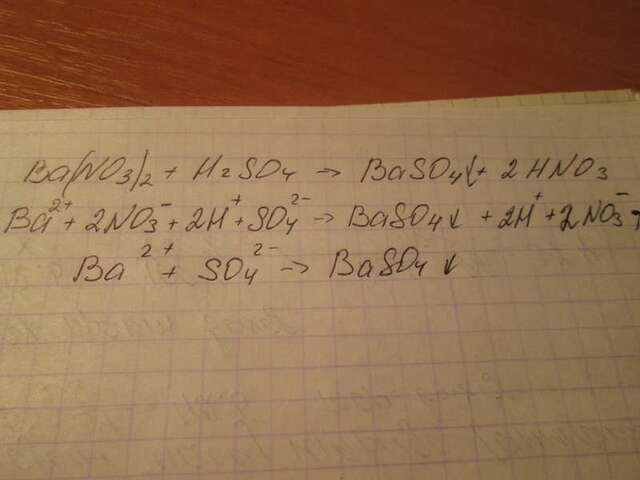 Ba(NO₃)₂ + H₂SO₄ → BaSO₄↓ + 2HNO₃
Ba²⁺ + 2NO₃⁻ + 2H⁺ + SO₄²⁻ → BaSO₄↓ + 2H⁺ + 2NO₃⁻
Ba²⁺ + SO₄²⁻ → BaSO₄↓